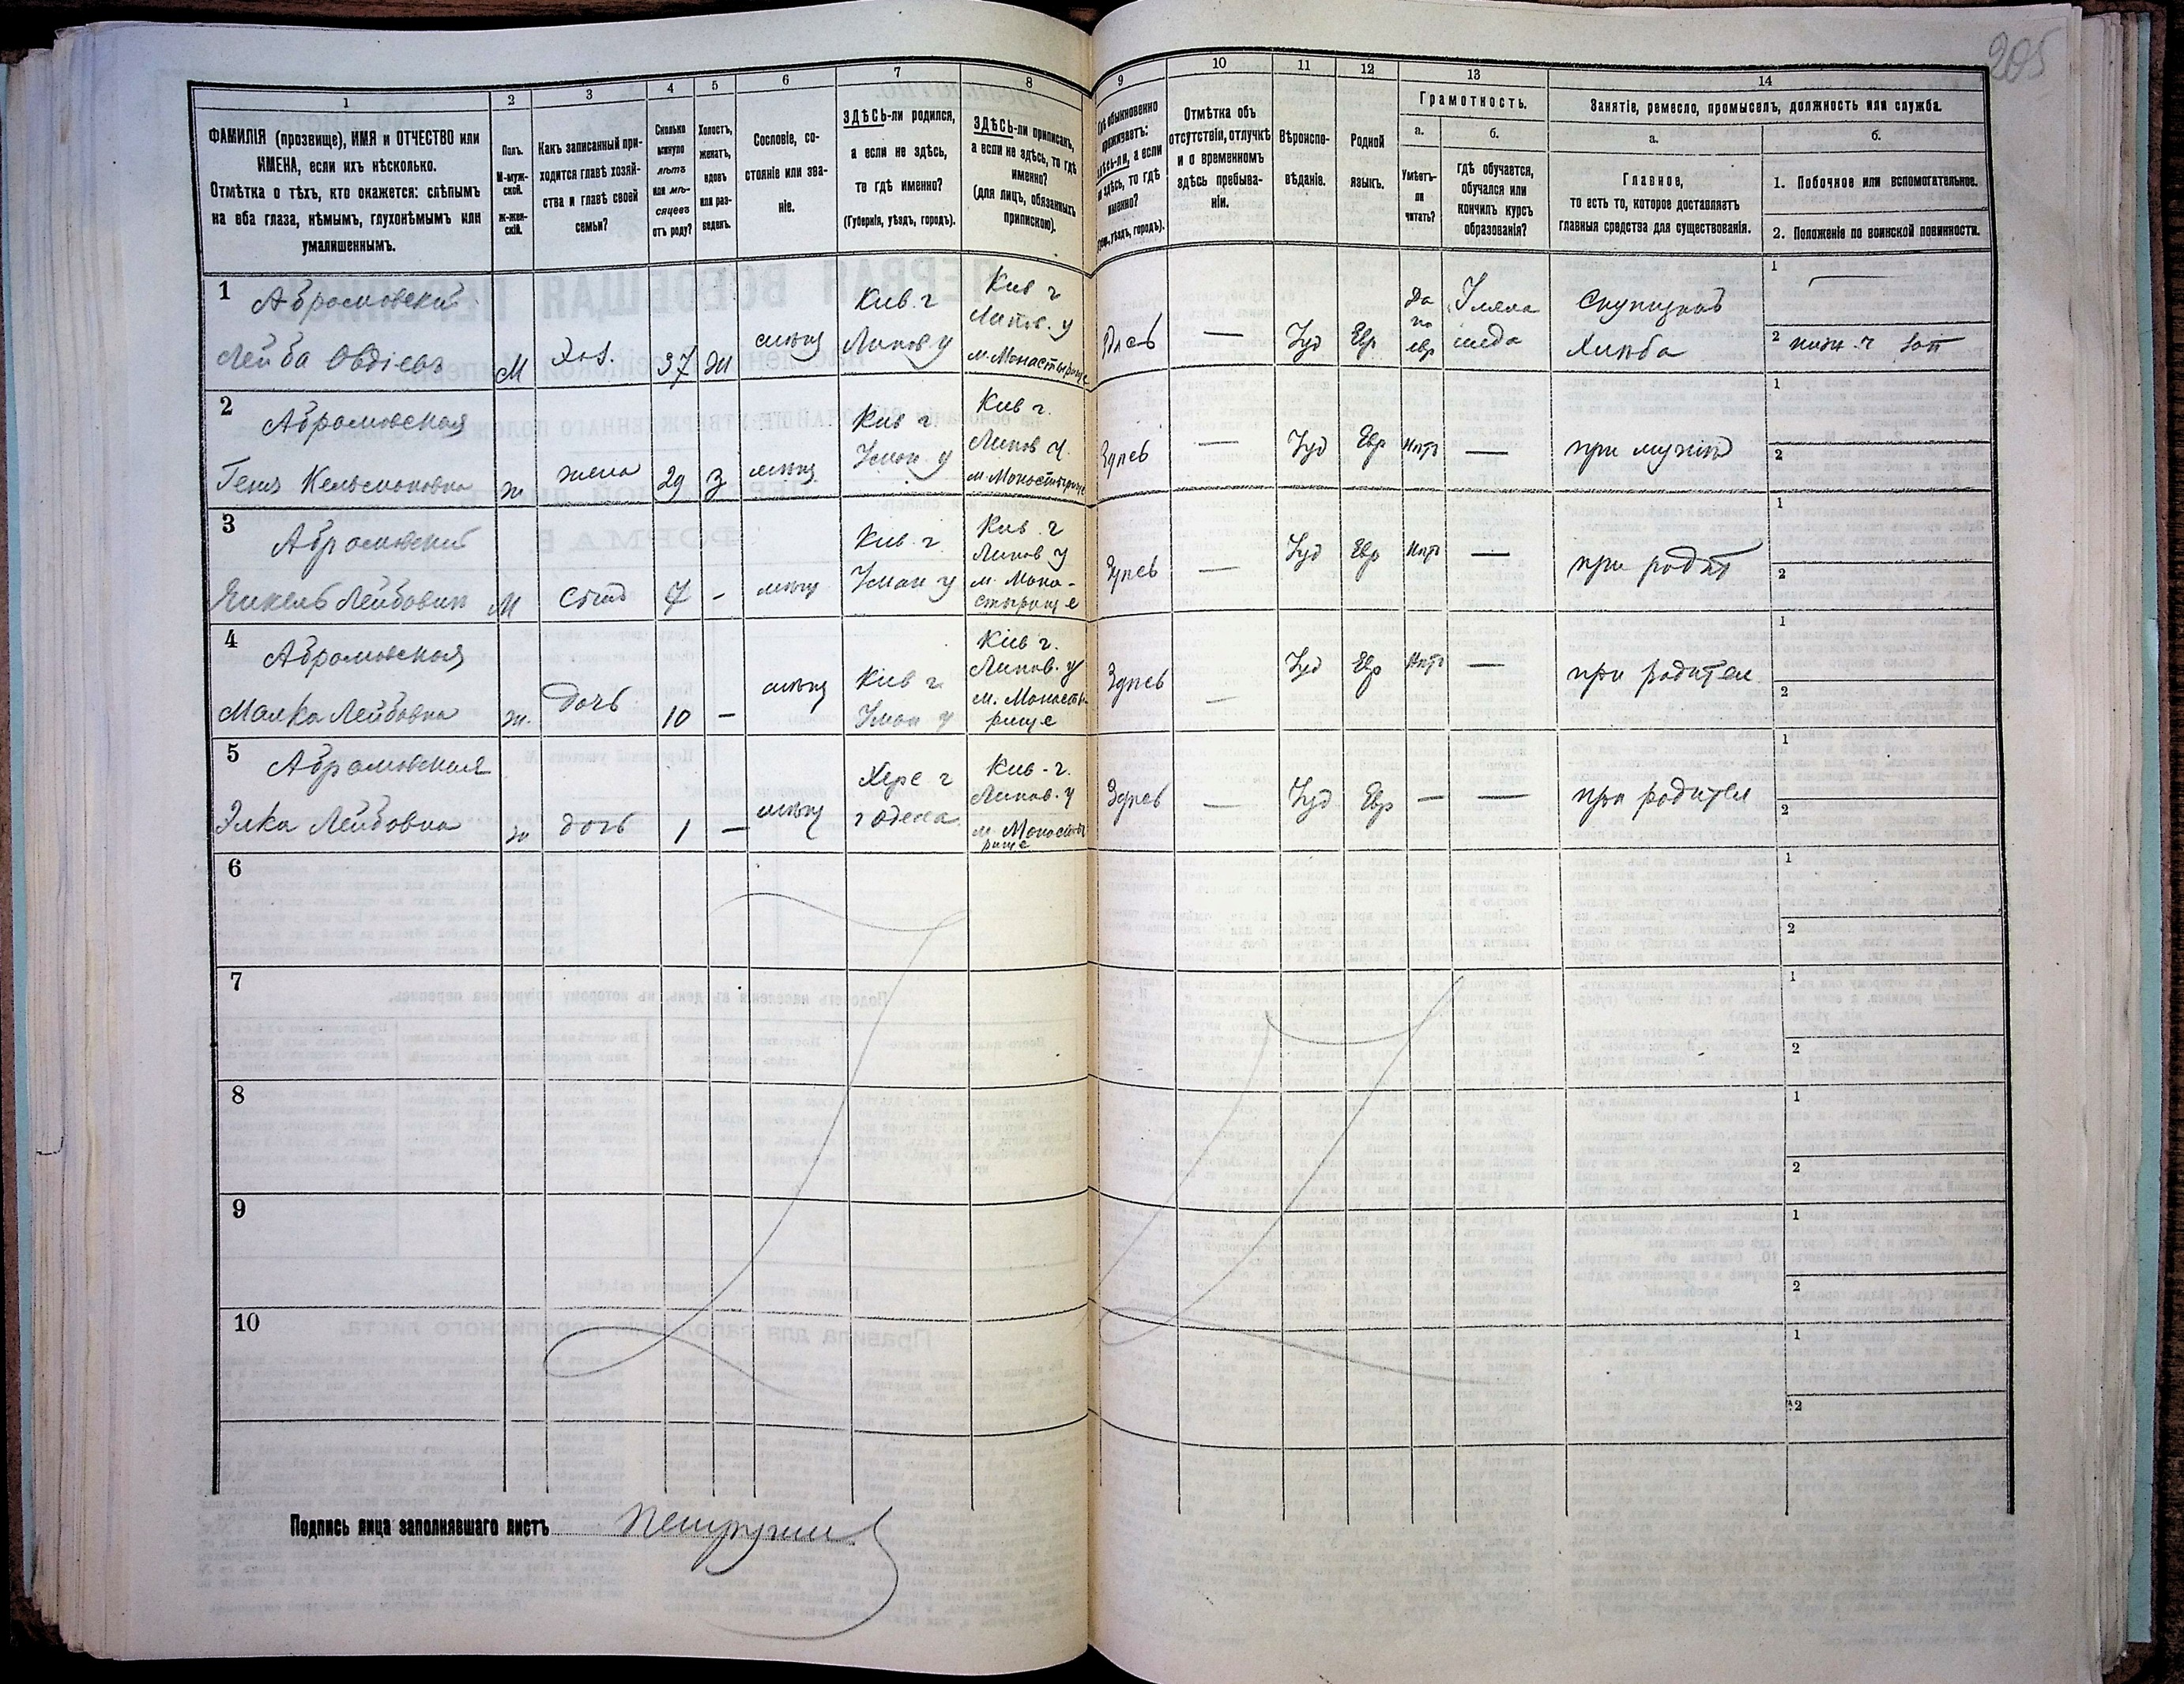 205
1 2 3 4 5 6 7 8 9 10 11 12 13 14
ФАМИЛІЯ (прозвище), ИМЯ и ОТЧЕСТВО или
ИМЕНА, если ихъ нѣсколько.
Отмѣтка о тѣхъ, кто окажется: слѣпымъ
на оба глаза, нѣмымъ, глухонѣмымъ или
умалишеннымъ.
Полъ.
М-муж-
ской.
Ж-жен-
скій.
Какъ записанный при-
ходится главѣ хозяй-
ства и главѣ своей
семьи?
Сколько
минуло
лѣтъ
или мѣ-
сяцевъ
отъ роду?
Холостъ,
женатъ,
вдовъ
или раз-
веденъ.
Сословіе, со-
стояніе или зва-
ніе.
ЗДѢСЬ-ли родился,
а если не здѣсь,
то гдѣ именно?
(Губернія, уѣздъ, городъ).
ЗДѢСЬ-ли приписанъ,
а если не здѣсь, то гдѣ
именно?
(для лицъ, обязанныхъ
припискою).
обыкновенно
проживаетъ:
здѣсь-ли, а если
не здѣсь, то гдѣ
именно?
уѣздъ, городъ).
Отмѣтка объ
отсутствіи, отлучкѣ
и о временномъ
здѣсь пребыва-
ніи.
Вѣроиспо-
вѣданіе.
Родной
языкъ.
Грамотность.
а.
Умѣетъ-
ли
читать?
б.
гдѣ обучается,
обучался или
кончилъ курсъ
образованія?
Занятіе, ремесло, промыселъ, должность или служба.
а.
Главное,
то есть то, которое доставляетъ
главныя средства для существованія.
б.
1. Побочное или вспомогательное.
2. Положеніе по воинской повинности.
1 Абрамовскій
Лейба Овдіевъ М Хоз. 37 Ж мѣщ
Кив. г
Липов. у
Кив г
Липов. у
м. Монастырище
— Іуд Евр
Да
по
евр
хлѣба
1 —
2
2 Абрамовская
Геня Кельмановна ж жена 29 З мѣщ
Кив г
Уман у
Кив г.
Липов у.
м. Монастырище
Здѣсь — Іуд Евр Нѣтъ — при мужѣ
1
2
3 Абрамовскій
Янкель Лейбович М Сынъ 7 - мѣщ
Кив. г
Уман у
Кив. г
Липов у
м. Мона-
стырище
Здѣсь — Іуд Евр Нѣтъ — при родит
1
2
4 Абрамовская
Малка Лейбовна ж. дочь 10 — мѣщ
Кив г
Уман у
Кив г.
Липов. у
м. Монасты-
рище
Здѣсь — Іуд Евр Нѣтъ — при родител
1
2
5 Абрамовская
Элка Лейбовна ж дочь 1 — мѣщ
Херс г
г Одесса
Кив - г.
Липов. у
м. Монасты
рище
Здѣсь — Іуд Евр — — при родител
1
2
6
1
2
7
1
2
8
1
2
9
1
2
10
1
2
Подпись лица заполнявшаго листъ